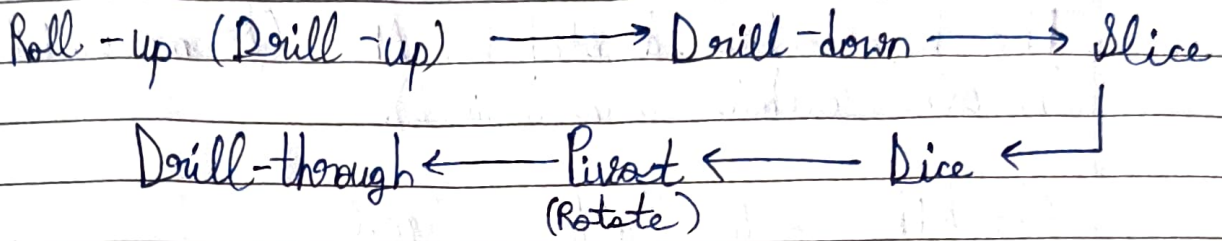 Roll-up (Drill-up) → Drill-down → Slice
Drill-through ← Pivot ← Dice ←
(Rotate)